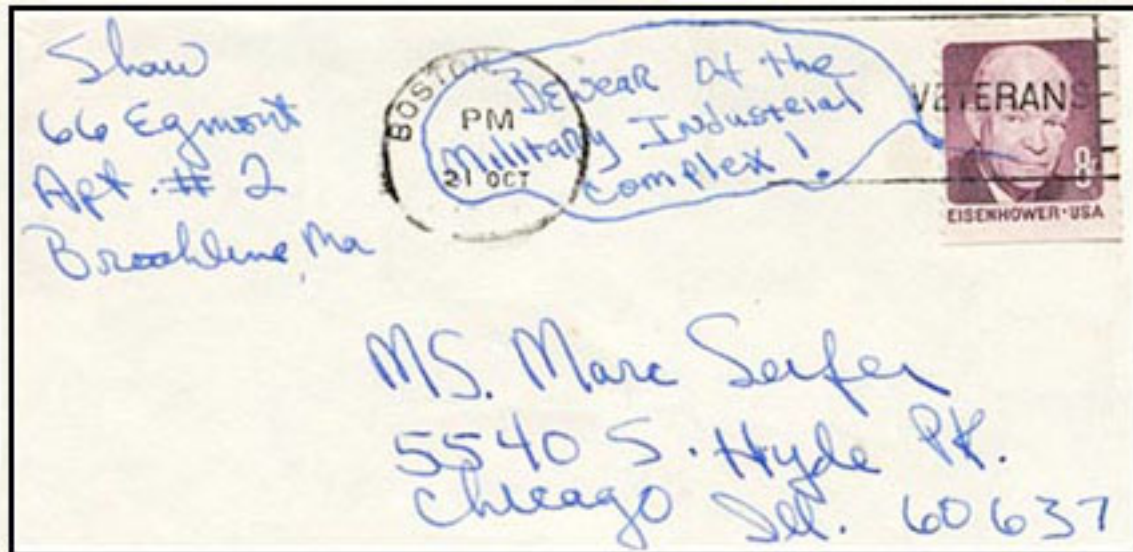 Shaw
66 Egmont
Apt. # 2
Brookline, Ma
BOSTON
PM
21 OCT
BEwear Of the
Military Industerial
Complex!
VETERANS
8¢
EISENHOWER·USA
MS. Marc Seifer
5540 S. Hyde PK.
Chicago Ill. 60637